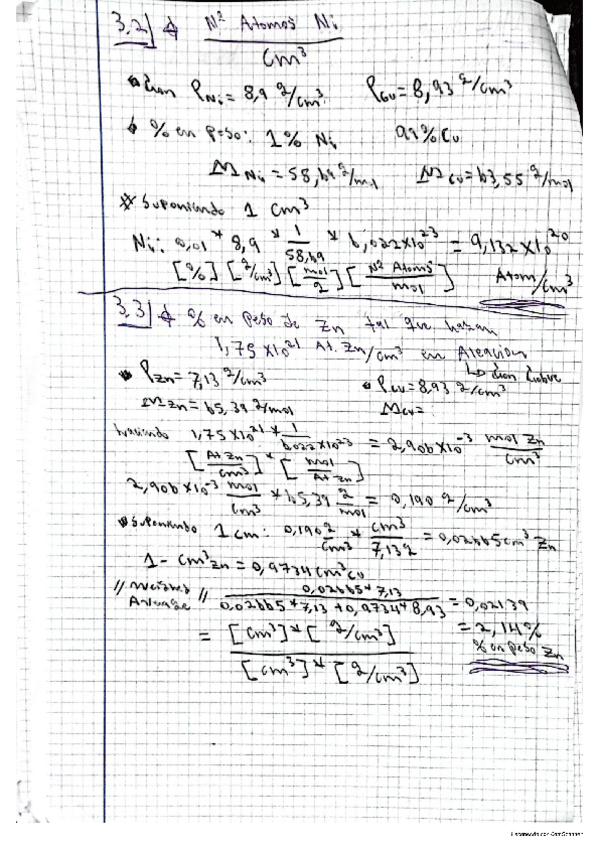 3.2) N° Atomos Ni
cm³
Con ρNi = 8,9 g/cm³ ρCu = 8,93 g/cm³
% en peso: 1% Ni 99% Cu
MNi = 58,69 g/mol MCu = 63,55 g/mol
* Suponiendo 1 cm³
Ni: 0,01 * 8,9 * 1/58,69 * 6,022x10^23 = 9,132x10^20
[%] [g/cm³] [mol/g] [N° Atoms/mol] Atom/cm³
3.3) % en peso de Zn tal que hayan
1,75x10^21 At. Zn/cm³ en Aleacion
↳ Con Cobre
ρZn = 7,13 g/cm³ ρCu = 8,93 g/cm³
MZn = 65,39 g/mol MCu =
haciendo 1,75x10^21 * 1/6,022x10^23 = 2,906x10^-3 mol Zn/cm³
[At Zn/cm³] * [mol/At Zn]
2,906x10^-3 mol/cm³ * 65,39 g/mol = 0,190 g/cm³
Suponiendo 1 cm: 0,190 g/cm³ * cm³/7,13g = 0,02665 cm³ Zn
1 - cm³Zn = 0,9734 cm³Cu
// // 0,02665*7,13 / 0,02665*7,13 + 0,9734*8,93 = 0,02139
= [cm³]*[g/cm³] / [cm³]*[g/cm³] = 2,14%
% en peso Zn